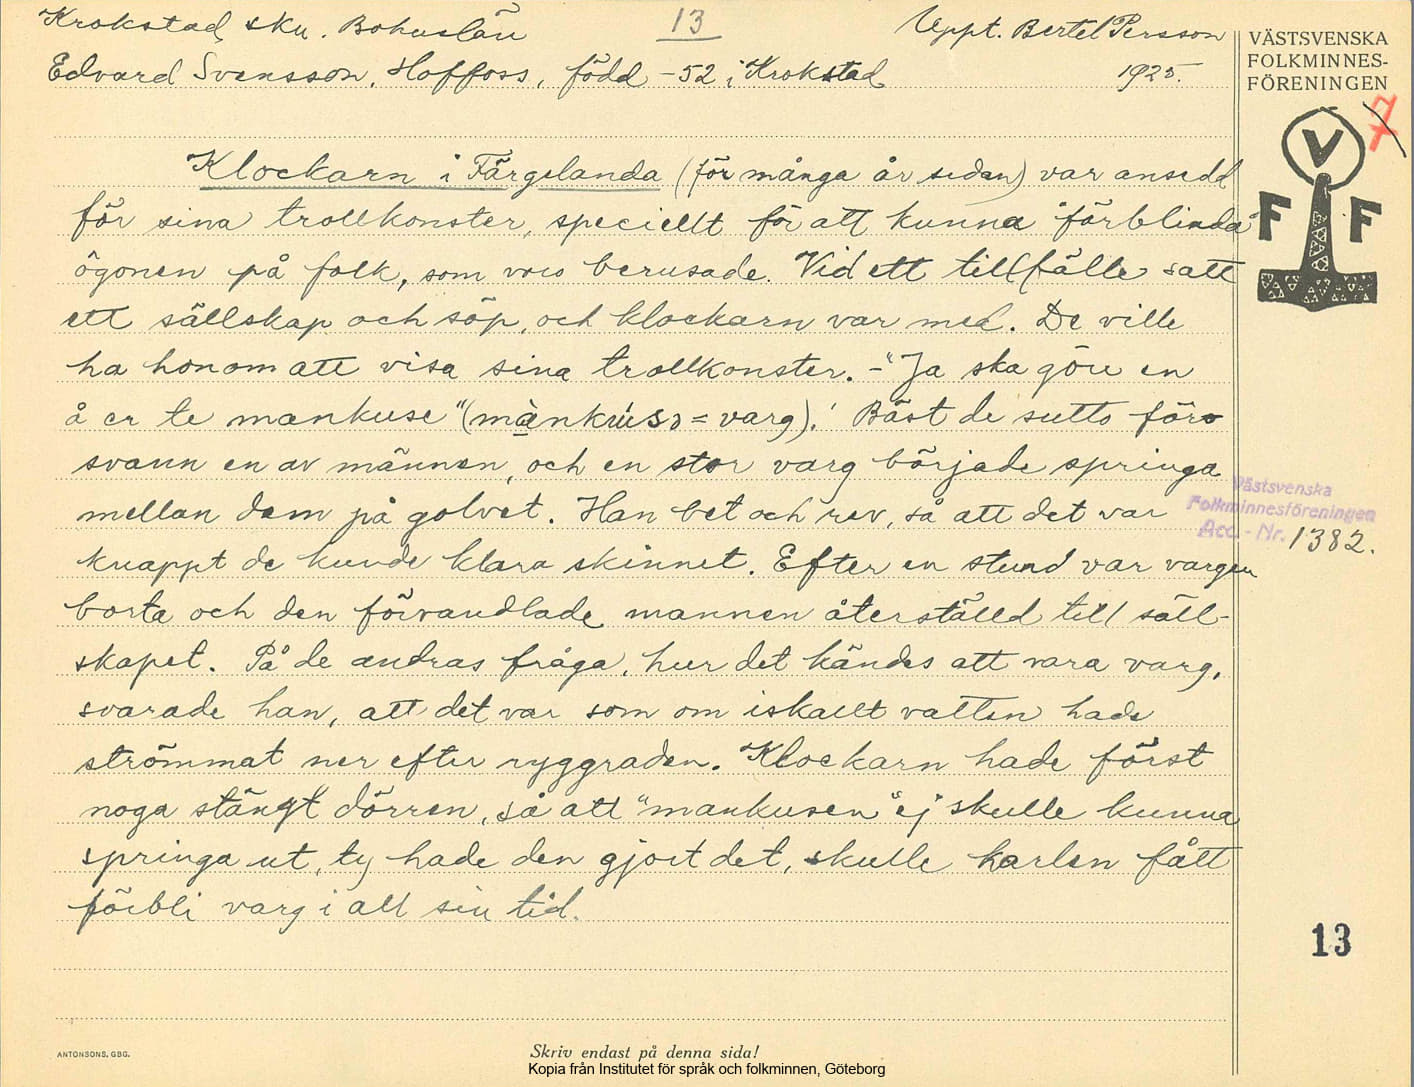 Krokstad sku. Bohuslän
13
Uppt. Bertel Persson
Edvard Svensson, Hoffoss, född -52 i Krokstad
1925.
VÄSTSVENSKA
FOLKMINNES-
FÖRENINGEN
7
V
F F
Klockarn i Färgelanda (för många år sedan) var ansedd
för sina trollkonster, speciellt för att kunna "förblinda"
ögonen på folk, som voro berusade. Vid ett tillfälle satt
ett sällskap och söp, och klockarn var med. De ville
ha honom att visa sina trollkonster. - "Ja ska göre en
å er te mankuse" (mànkusə = varg). Bäst de sutto för-
svann en av männen, och en stor varg började springa
mellan dem på golvet. Han bet och rev, så att det var
knappt de kunde klara skinnet. Efter en stund var vargen
borta och den förvandlade mannen återställd till säll-
skapet. På de andras fråga, hur det kändes att vara varg,
svarade han, att det var som om iskallt vatten hade
strömmat ner efter ryggraden. Klockarn hade först
noga stängt dörren, så att "mankusen" ej skulle kunna
springa ut, ty hade den gjort det, skulle karlen fått
förbli varg i all sin tid.
Västsvenska
Folkminnesföreningen
Acc. - Nr. 1382.
13
ANTONSONS, GBG.
Skriv endast på denna sida!
Kopia från Institutet för språk och folkminnen, Göteborg